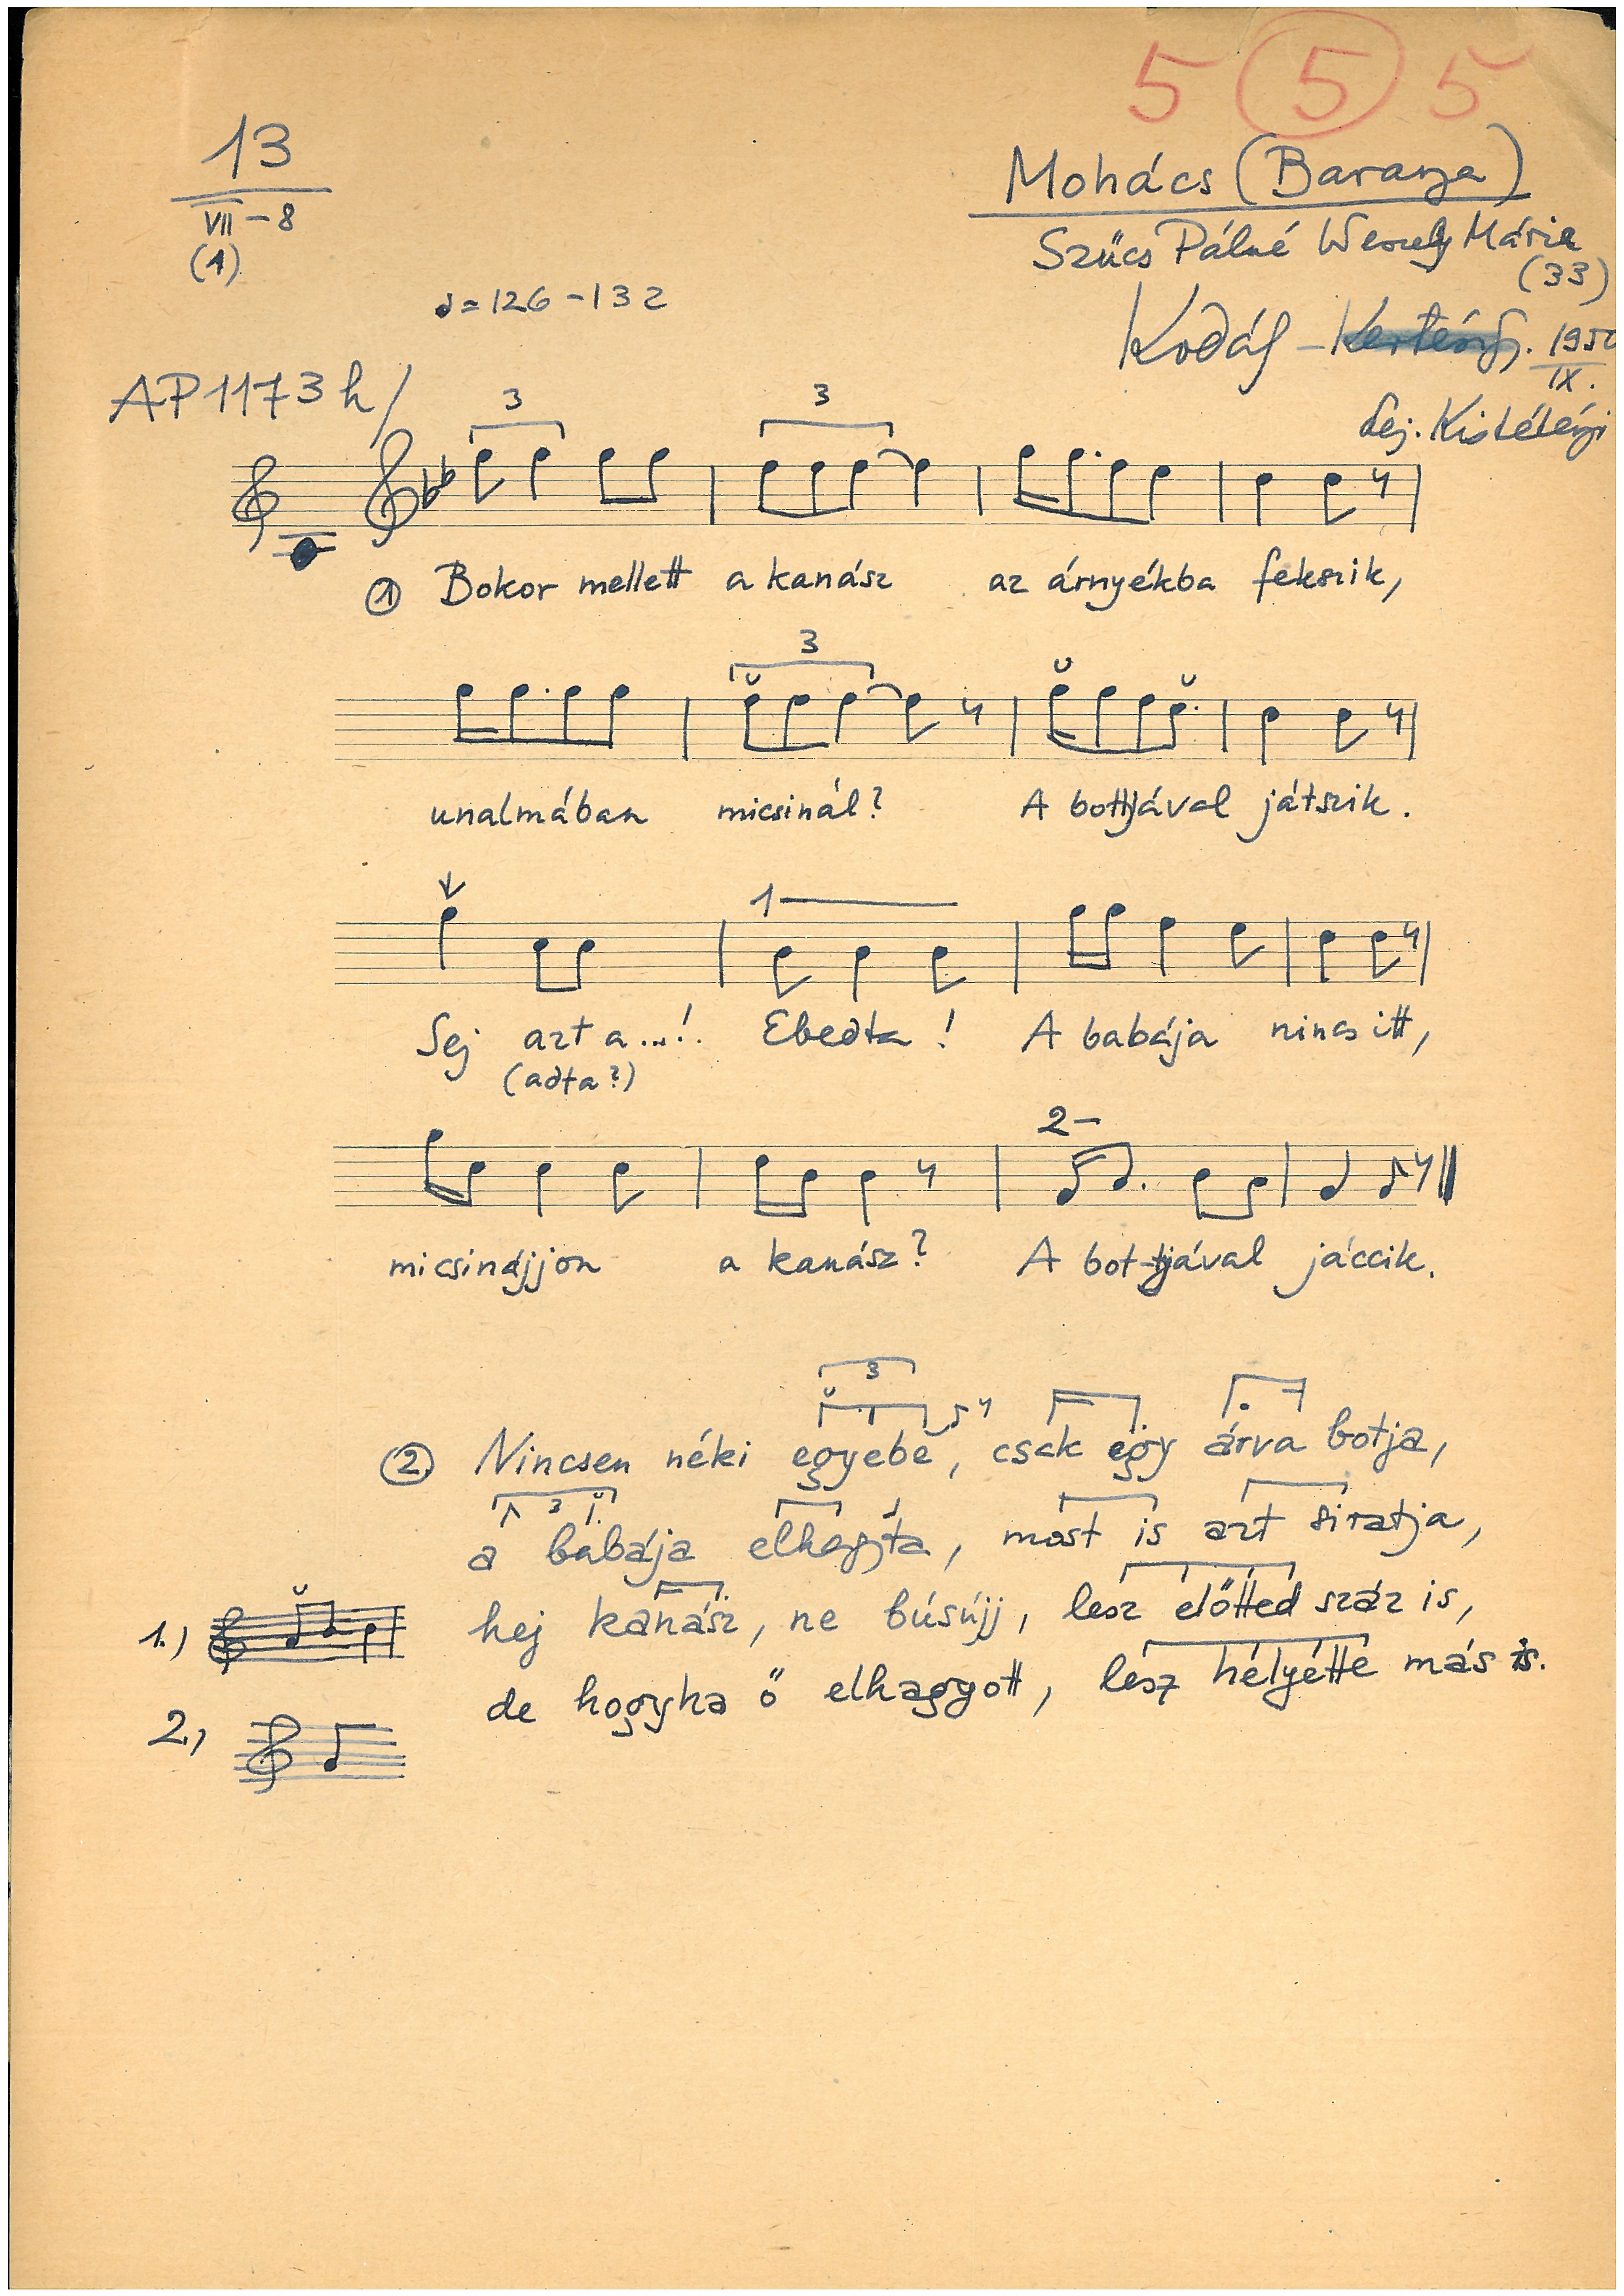 5 (5) 5
13
VII-8
(1)
Mohács (Baranya)
Szűcs Pálné Weszely Mária
(33)
♩=126-132
Kodály - Kertész Gy. 1952
IX.
lej. Kistétényi
AP 1173 h/
3 3
① Bokor mellett a kanász az árnyékba fekszik,
3
unalmában micsinál? A bottjával játszik.
1
Sej azt a...! Ebedta! A babája nincs itt,
(adta?)
2
micsinájjon a kanász? A bot-tjával jáccik.
3
②. Nincsen néki egyebe, csak egy árva botja,
3
a babája elhagyta, most is azt siratja,
1.) hej kanász, ne búsújj, lesz előtted száz is,
2.) de hogyha ő elhagyott, lesz helyétte más is.